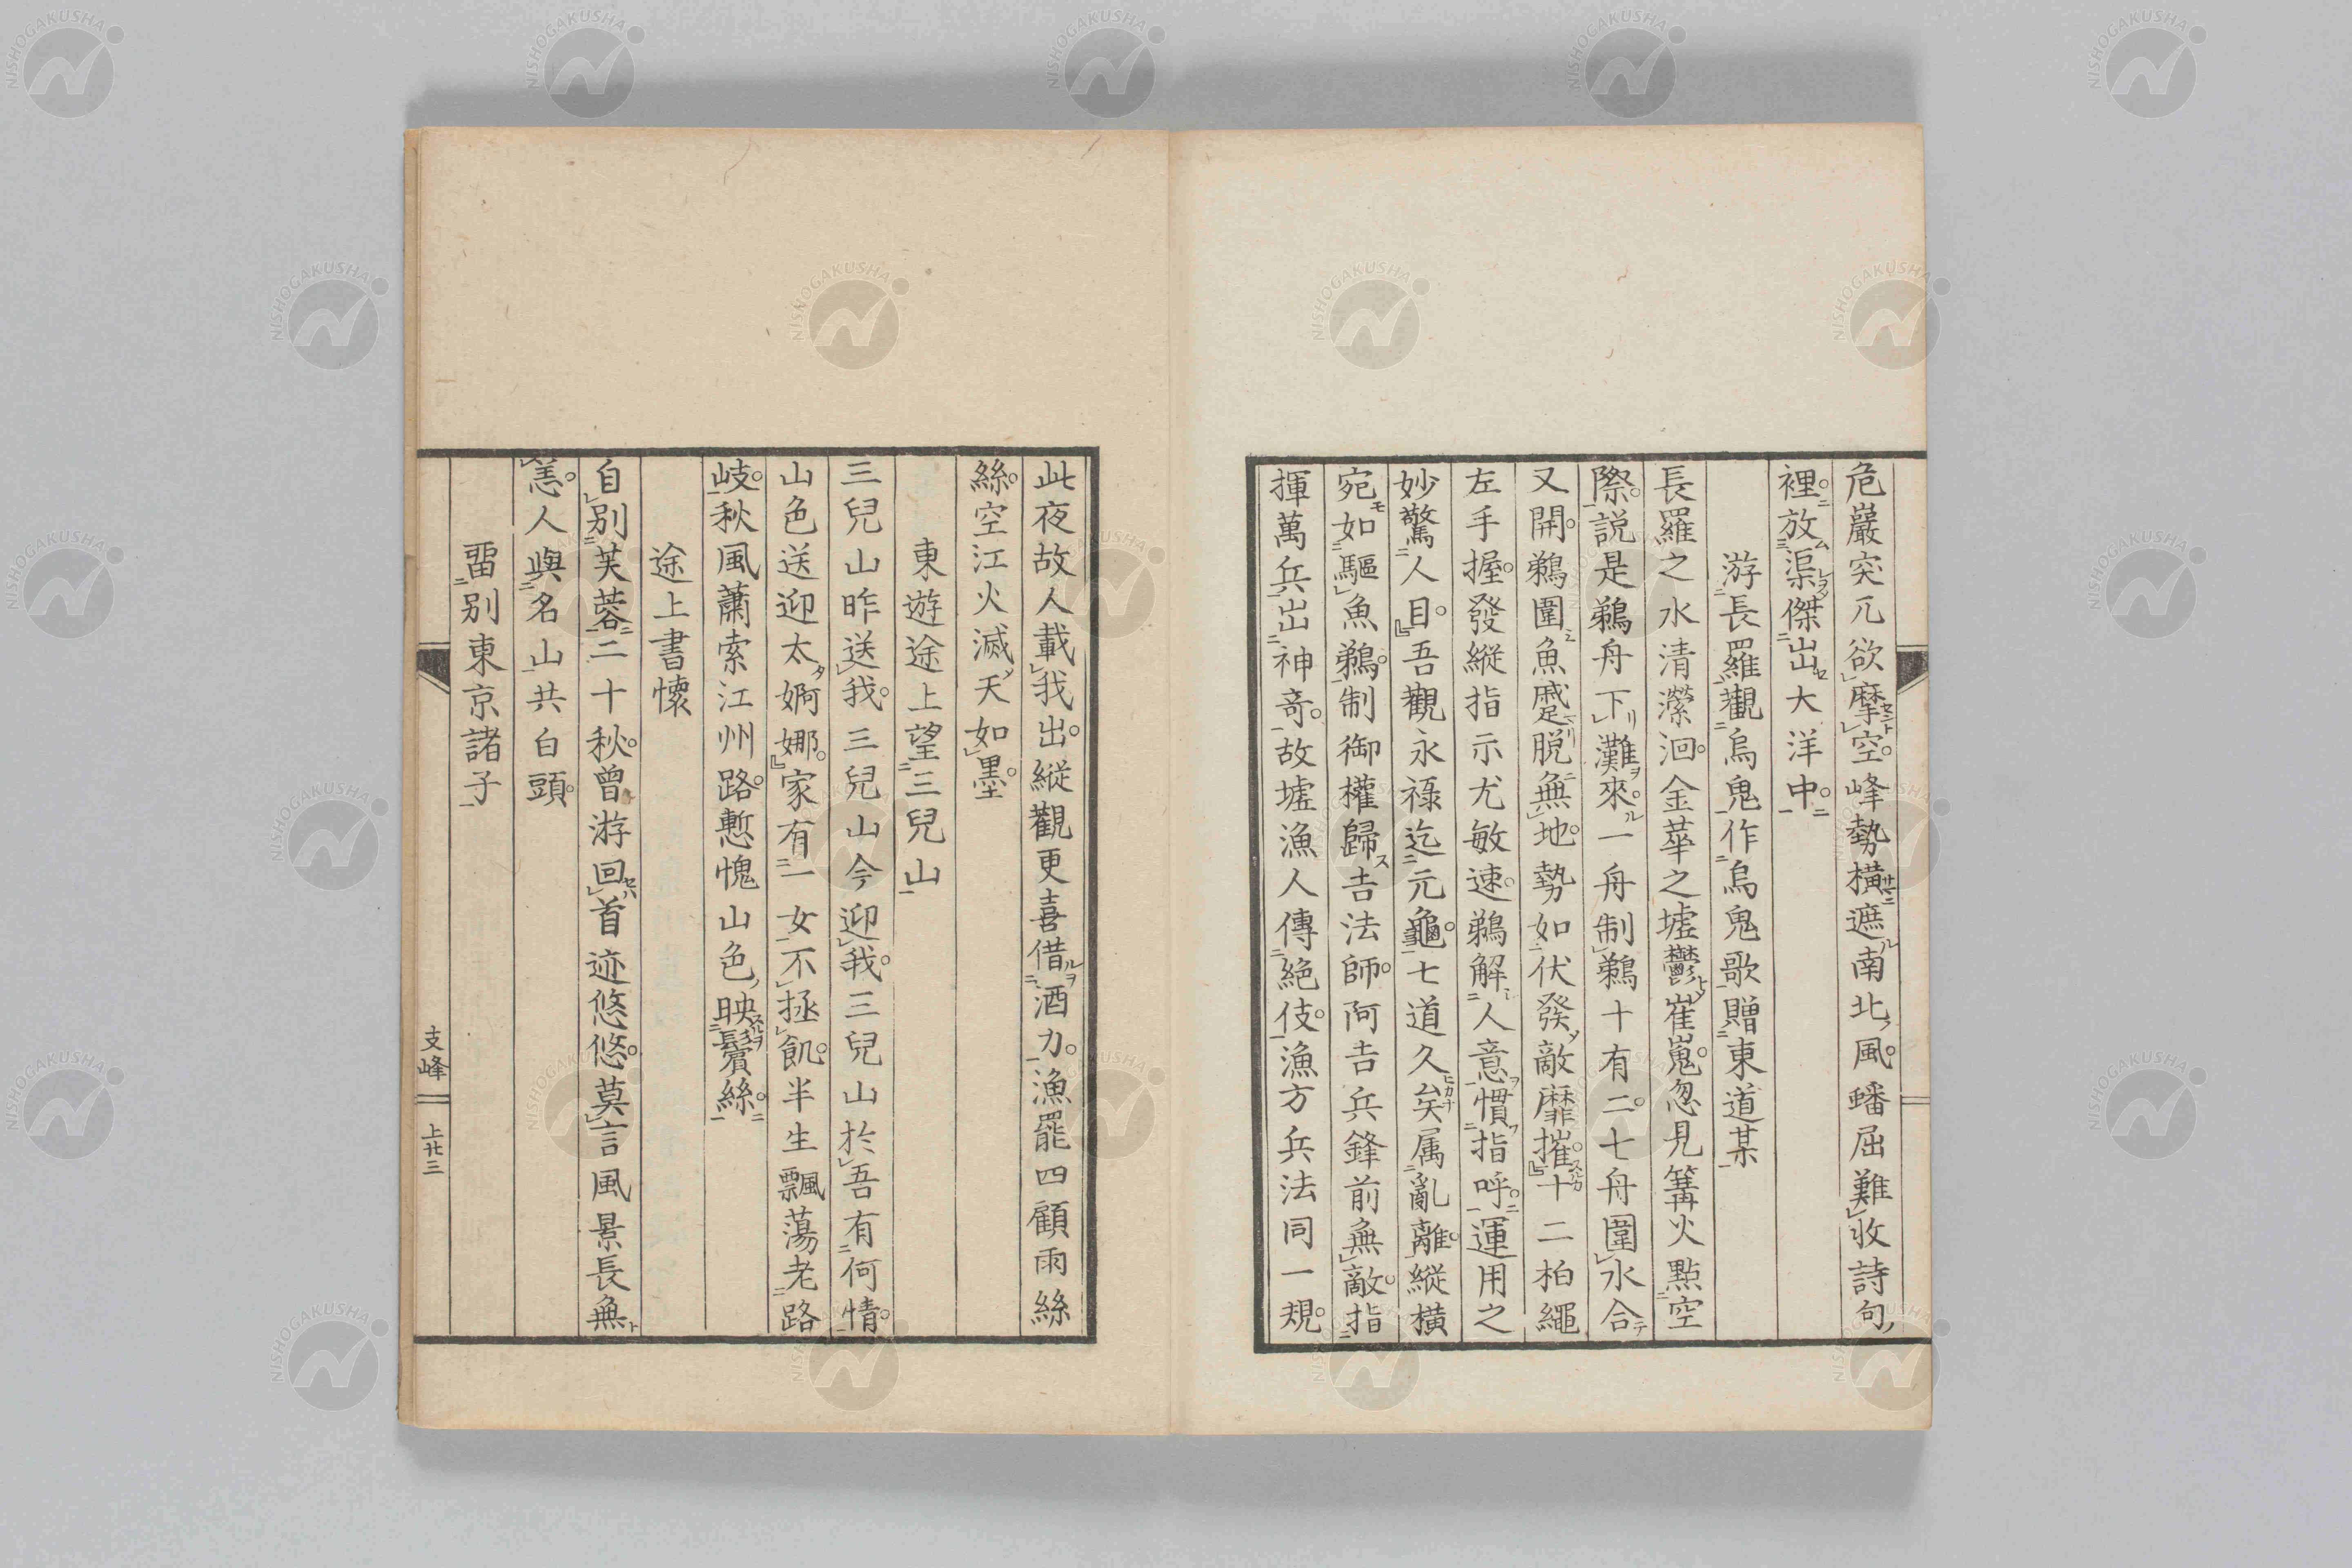 危巖突兀欲摩空峰勢橫遮南北風蟠屈難收詩句
裡放渠傑出大洋中
游長羅觀烏鬼作烏鬼歌贈東道某
長羅之水清瀠洄金華之墟鬱崔嵬忽見篝火點空
際説是鵜舟下灘來一舟制鵜十有二七舟圍水合
又開鵜圍魚蹙脱無地勢如伏發敵靡摧十二柏繩
左手握發縱指示尤敏速鵜解人意慣指呼運用之
妙驚人目吾觀永祿迄元龜七道久矣属亂離縱橫
宛如驅魚鵜制御權歸吉法師阿吉兵鋒前無敵指
揮萬兵出神奇故墟漁人傳絕伎漁方兵法同一規
此夜故人載我出縱觀更喜借酒力漁罷四顧雨絲
絲空江火滅天如墨
東遊途上望三兒山
三兒山昨送我三兒山今迎我三兒山於吾有何情
山色送迎太婀娜家有一女不拯飢半生飄蕩老路
岐秋風蕭索江州路慙愧山色映鬢絲
途上書懷
自別芙蓉二十秋曾游回首迹悠悠莫言風景長無
恙人與名山共白頭
畱別東京諸子
支峰 上廿三
NISHOGAKUSHA